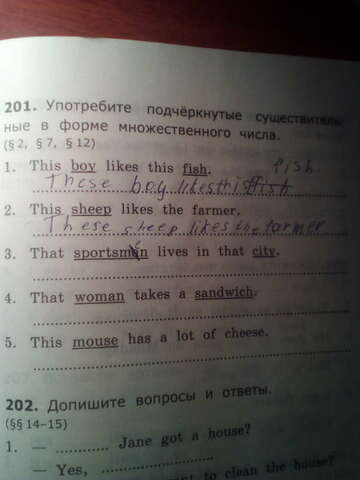 201. Употребите подчёркнутые существитель
ные в форме множественного числа.
(§ 2, § 7, § 12)
1. This boy likes this fish. fish
These boy likes this fish
2. This sheep likes the farmer.
These sheep likes the farmer
3. That sportsman lives in that city.
4. That woman takes a sandwich.
5. This mouse has a lot of cheese.
202. Допишите вопросы и ответы.
(§§ 14–15)
1. — ............ Jane got a house?
— Yes, ....................
want to clean the house?